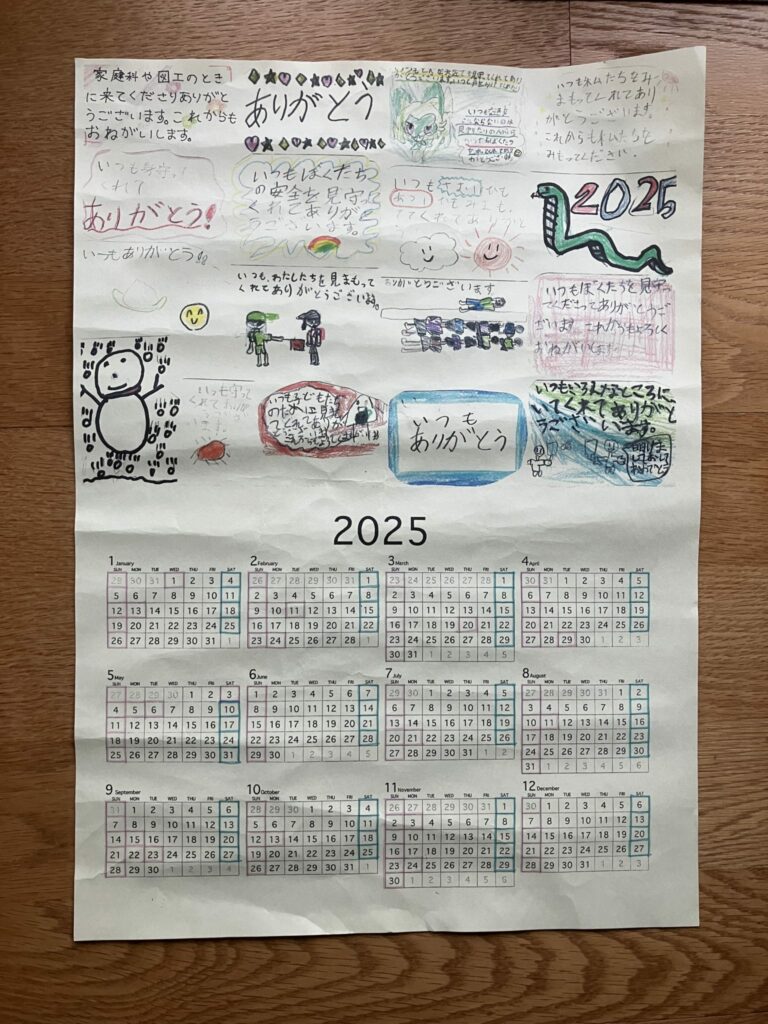 家庭科や図工のとき
に来てくださりありがと
うございます。これからも
おねがいします。
ありがとう
いつも私たちをみ
まもってくれてあり
がとうございます。
これからも私たちを
みもってください。
いつも見守って
くれて
ありがとう!
いつもぼくたち
の安全を見守っ
くれてありが
とうございます。
いつも
2025
いつもありがとう!!
いつも、わたしたちを見まもって
くれてありがとうございます。
ありがとうございます
いつもぼくたちを見守っ
てくださってありがとうご
ざいます。これからもよろしく
おねがいします
いつも守って
くれてありが
います。
いつも
ありがとう
いつもいろんなところに
いてくれてありがと
うございます。
明けま
しておめ
でとう
2025
1 January
SUN MON TUE WED THU FRI SAT
29 30 31 1 2 3 4
5 6 7 8 9 10 11
12 13 14 15 16 17 18
19 20 21 22 23 24 25
26 27 28 29 30 31 1
2 February
SUN MON TUE WED THU FRI SAT
26 27 28 29 30 31 1
2 3 4 5 6 7 8
9 10 11 12 13 14 15
16 17 18 19 20 21 22
23 24 25 26 27 28 1
3 March
SUN MON TUE WED THU FRI SAT
23 24 25 26 27 28 1
2 3 4 5 6 7 8
9 10 11 12 13 14 15
16 17 18 19 20 21 22
23 24 25 26 27 28 29
30 31 1 2 3 4 5
4 April
SUN MON TUE WED THU FRI SAT
30 31 1 2 3 4 5
6 7 8 9 10 11 12
13 14 15 16 17 18 19
20 21 22 23 24 25 26
27 28 29 30 1 2 3
5 May
SUN MON TUE WED THU FRI SAT
27 28 29 30 1 2 3
4 5 6 7 8 9 10
11 12 13 14 15 16 17
18 19 20 21 22 23 24
25 26 27 28 29 30 31
6 June
SUN MON TUE WED THU FRI SAT
1 2 3 4 5 6 7
8 9 10 11 12 13 14
15 16 17 18 19 20 21
22 23 24 25 26 27 28
29 30 1 2 3 4 5
7 July
SUN MON TUE WED THU FRI SAT
29 30 1 2 3 4 5
6 7 8 9 10 11 12
13 14 15 16 17 18 19
20 21 22 23 24 25 26
27 28 29 30 31 1 2
8 August
SUN MON TUE WED THU FRI SAT
27 28 29 30 31 1 2
3 4 5 6 7 8 9
10 11 12 13 14 15 16
17 18 19 20 21 22 23
24 25 26 27 28 29 30
31 1 2 3 4 5 6
9 September
SUN MON TUE WED THU FRI SAT
31 1 2 3 4 5 6
7 8 9 10 11 12 13
14 15 16 17 18 19 20
21 22 23 24 25 26 27
28 29 30 1 2 3 4
10 October
SUN MON TUE WED THU FRI SAT
28 29 30 1 2 3 4
5 6 7 8 9 10 11
12 13 14 15 16 17 18
19 20 21 22 23 24 25
26 27 28 29 30 31 1
11 November
SUN MON TUE WED THU FRI SAT
26 27 28 29 30 31 1
2 3 4 5 6 7 8
9 10 11 12 13 14 15
16 17 18 19 20 21 22
23 24 25 26 27 28 29
30 1 2 3 4 5 6
12 December
SUN MON TUE WED THU FRI SAT
30 1 2 3 4 5 6
7 8 9 10 11 12 13
14 15 16 17 18 19 20
21 22 23 24 25 26 27
28 29 30 31 1 2 3